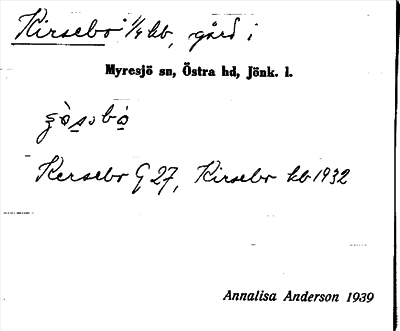 Kirsebo 1/4 kb, gård i
Myresjö sn, Östra hd, Jönk. l.
Kersebo G 27, Kirsebo kb 1932
Annalisa Anderson 1939